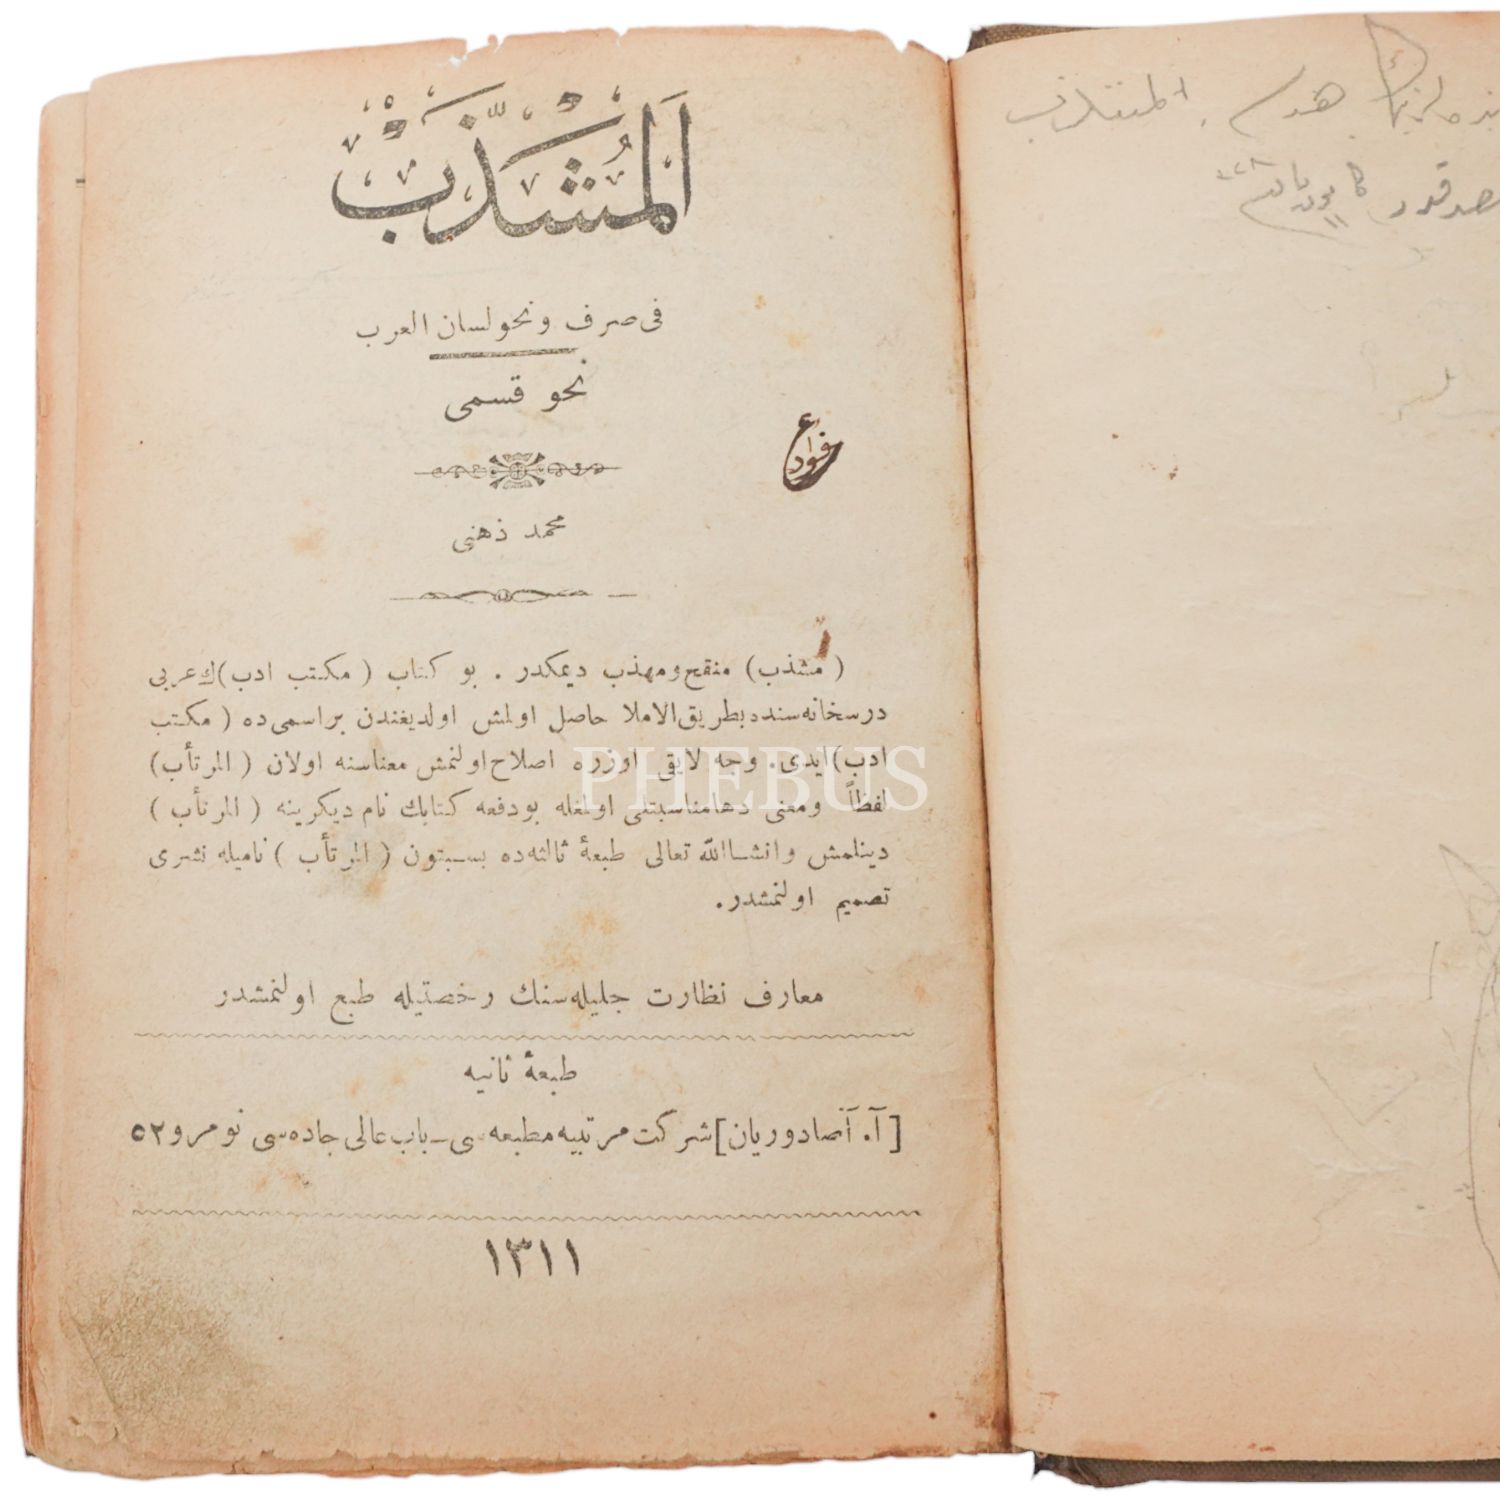 اَلْمُشَذَّبْ
فى صرف ونحو لسان العرب
نحو قسمى
فواد
محمد ذهنى
(مشذب) منقح ومهذب ديمكدر . بو كتاب (مكتب ادب) ك عربى
درسخانه سنده بطريق الاملا حاصل اولمش اولديغندن بر اسمى ده (مكتب
ادب) ايدى. وجه لايقى اوزره اصلاح اولنمش معناسنه اولان (المرتأب)
لفظاً ومعنى دها مناسبتلى اولمغله بودفعه كتابك نام ديكرينه (المرتأب)
دينلمش وانشاالله تعالى طبعهٔ ثالثه ده بسبتون (المرتأب) ناميله نشرى
تصميم اولنمشدر.
معارف نظارت جليله سنك رخصتيله طبع اولنمشدر
طبعهٔ ثانيه
[آ. آصادوريان] شركت مرتبيه مطبعه سى ـ باب عالى جاده سى نومرو ٥٢
١٣١١
PHEBUS